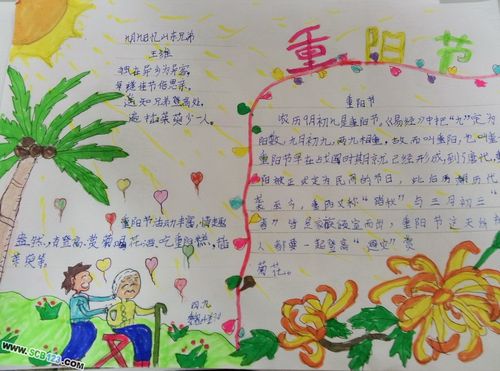 重阳节
九月九日忆山东兄弟
王维
独在异乡为异客,
每逢佳节倍思亲。
遥知兄弟登高处,
遍插茱萸少一人。
重阳节活动丰富,情趣
盎然,有登高,赏菊,喝菊花酒,吃重阳糕,插
茱萸等。
四、九
重阳节
农历九月初九是重阳节。《易经》中把“九”定为
阳数,九月初九,两九相重,故而叫重阳,也叫重
重阳节早在战国时期就已经形成,到了唐代,
阳被正式定为民间的节日,此后历朝历代
至今。重阳又称“踏秋”与三月初三
皆是家族倾室而出,重阳节这天所
人都要一起登高“避灾”
菊花。
www.SCB123.com